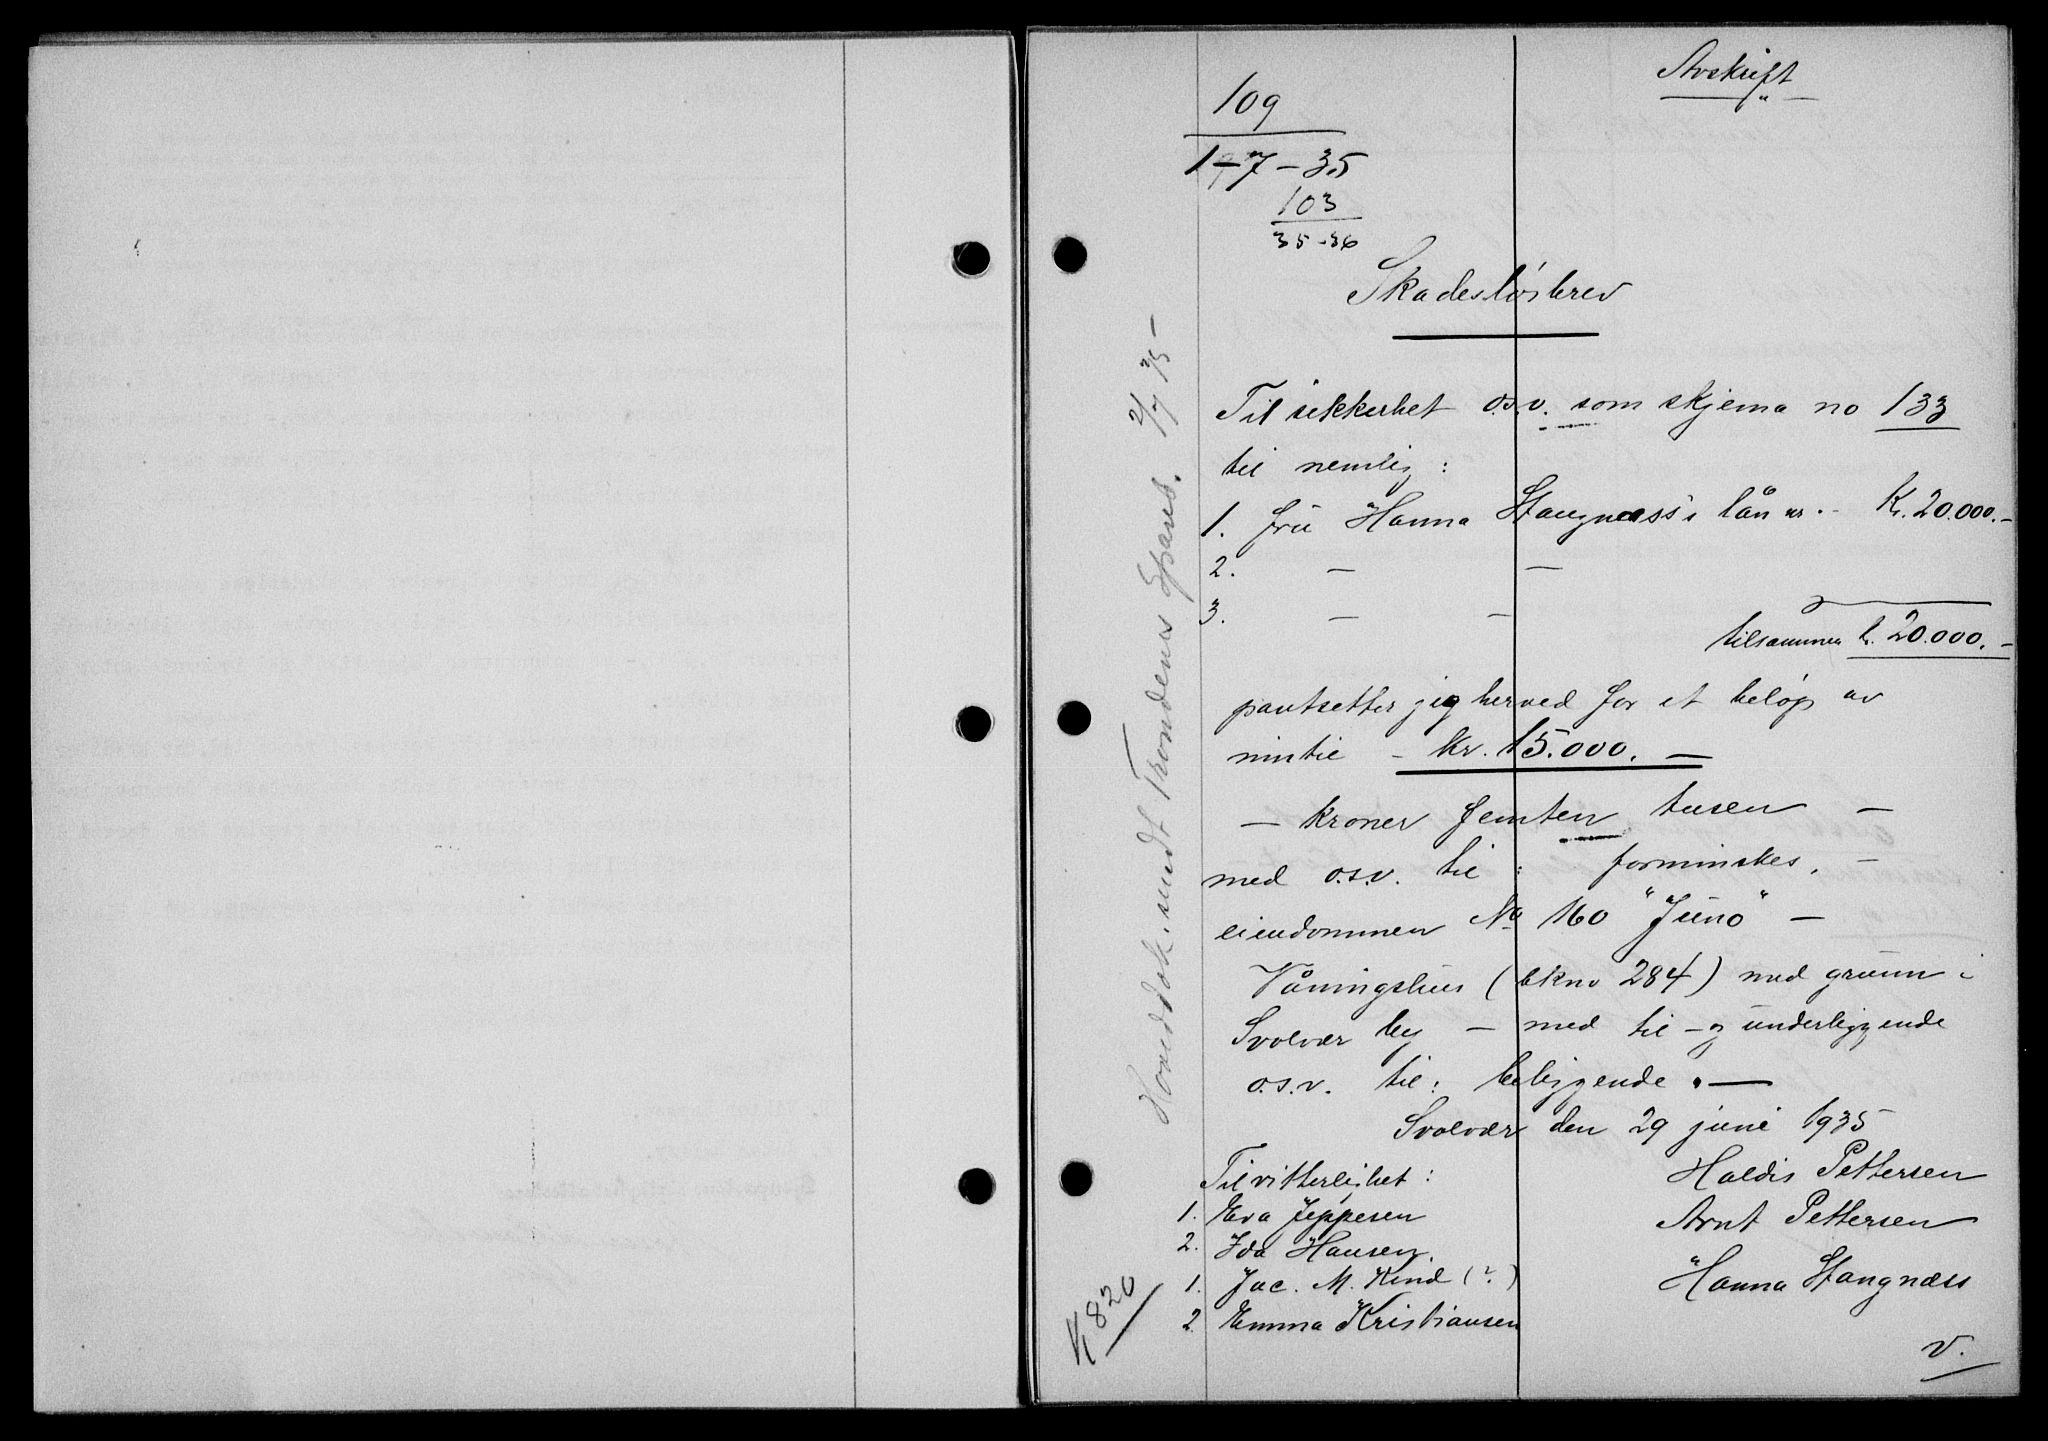 Avskrift
109
1-7-35
103
35-36
Skadesløsbrev
Til sikkerhet o.s.v. som skjema no 133
til nemlig:
1. fru Hanna Stangnæss's lån nr. - Kr. 20.000.-
2. — —
3. — —
tilsammen kr. 20.000.-
pantsetter jeg herved for et beløp av
inntil - Kr. 15.000. —
— kroner femten tusen —
med o.s.v. til: forminskes, —
eiendommen No 160 "Juno" —
Våningshus (bkno 284) med grunn i
Svolvær by — med til- og underliggende
o.s.v. til: beliggende. —
Svolvær den 29 juni 1935
Til vitterlighet:
Haldis Pettersen
1. Eva Jeppesen
Arnt Pettersen
2. Ida Hansen.
1. Jac. M. Kind (?)
Hanna Stangnæss
2. Emma Kristiansen
V.
Hoveddok. sendt Trondenes Spareb. 2/7 35 -
K 820